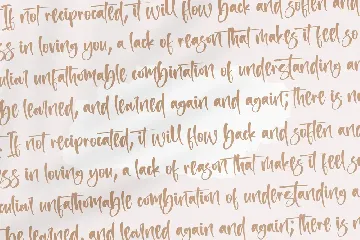 If not reciprocated, it will flow back and soften and
ss in loving you, a lack of reason that makes it feel so
culiar unfathomable combination of understanding an
be learned, and learned again and again; there is no
If not reciprocated, it will flow back and soften and
ss in loving you, a lack of reason that makes it feel so
culiar unfathomable combination of understanding a
be learned, and learned again and again; there is n